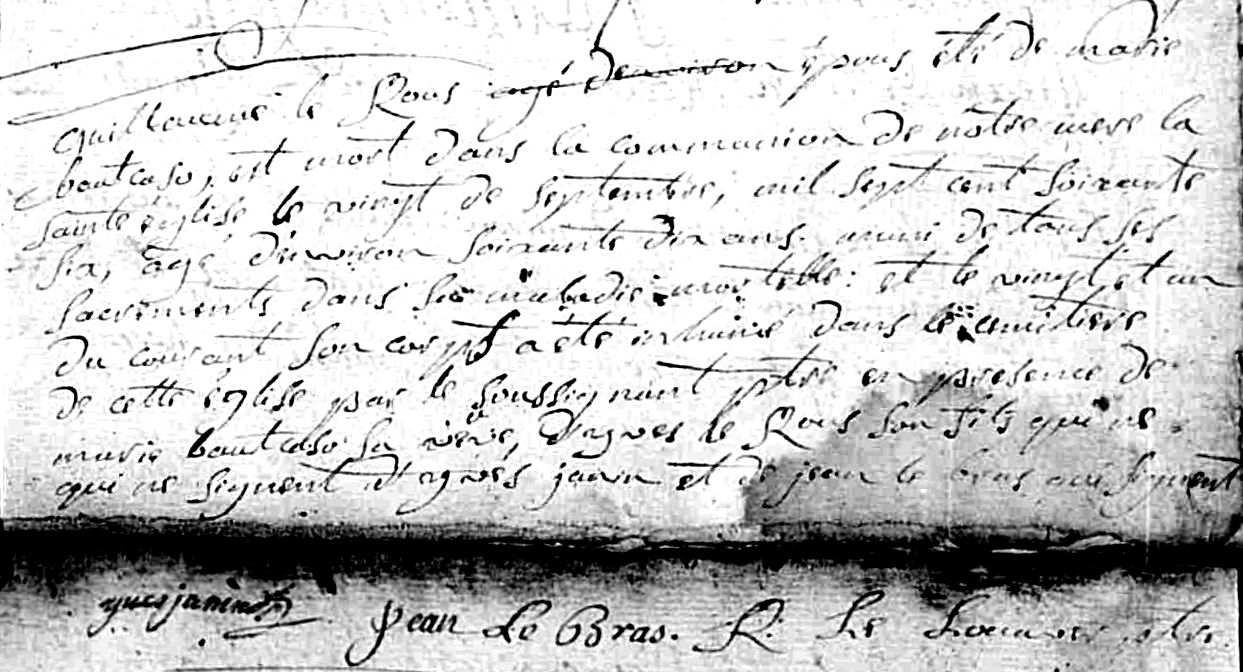 guillaume le Rous agé denviron époux été de marie
bautcaso, est mort dans la communion de nôtre mere la
sainte église le vingt de septembre, mil sept cent soixante
six, âgé d'environ soixante dix ans. muni de tous ses
sacrements dans sa maladie mortelle: et le vingt et un
du courant son corps a été inhumé dans le cimitiere
de cette église par le soussignant ptre en presence de
marie bautcaso sa veve, d'yves le Rous son fils qui ne
qui ne signent d'yves janin et de jean le bras qui signent
yves janin
Jean Le Bras. R. Le ptre